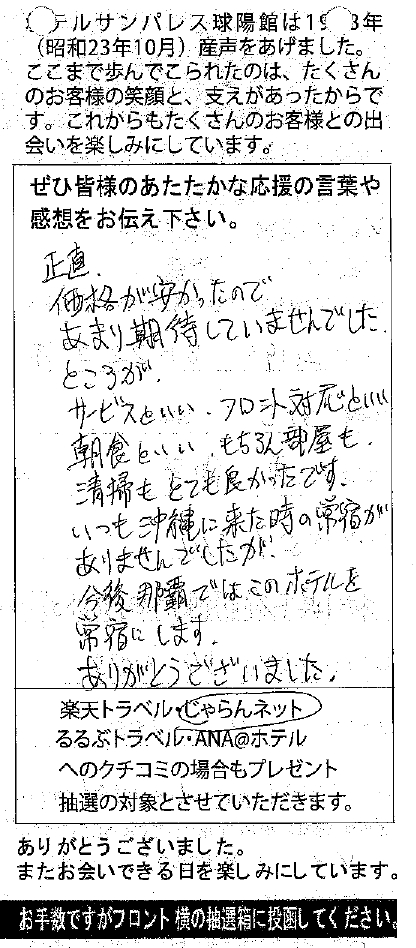 テルサンパレス球陽館は19 3年
（昭和23年10月）産声をあげました。
ここまで歩んでこられたのは、たくさん
のお客様の笑顔と、支えがあったからで
す。これからもたくさんのお客様との出
会いを楽しみにしています。
ぜひ皆様のあたたかな応援の言葉や
感想をお伝え下さい。
正直、
価格が安かったので
あまり期待していませんでした。
ところが、
サービスといい、フロント対応といい
朝食といい、もちろん部屋も、
清掃もとても良かったです。
いつも沖縄に来た時の常宿が
ありませんでしたが、
今後那覇ではこのホテルを
常宿にします。
ありがとうございました。
楽天トラベル・じゃらんネット
るるぶトラベル・ANA@ホテル
へのクチコミの場合もプレゼント
抽選の対象とさせていただきます。
ありがとうございました。
またお会いできる日を楽しみにしています。
お手数ですがフロント横の抽選箱に投函してください。